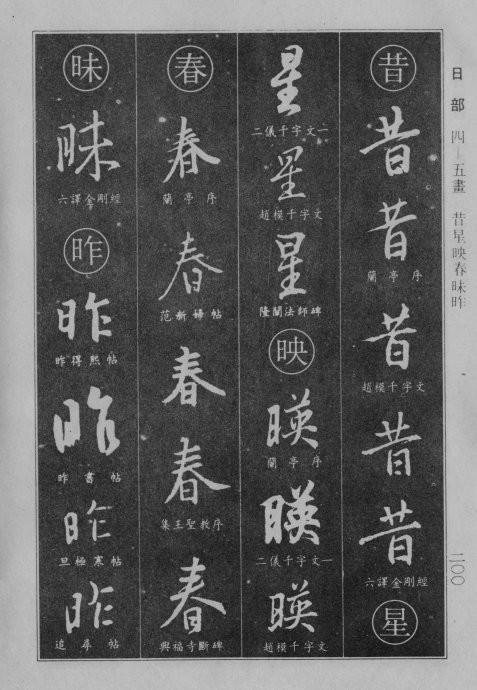 日部 四—五畫 昔星映春昧昨
二〇〇
昔
昔
昔
蘭亭序
昔
趙模千字文
昔
昔
六譯金剛經
星
星
二儀千字文一
星
趙模千字文
星
隆闡法師碑
映
暎
蘭亭序
暎
二儀千字文一
暎
趙模千字文
春
春
蘭亭序
春
范新婦帖
春
春
集王聖教序
春
興福寺斷碑
昧
昧
六譯金剛經
昨
昨
昨得熙帖
昨
昨書帖
昨
旦極寒帖
昨
追尋帖